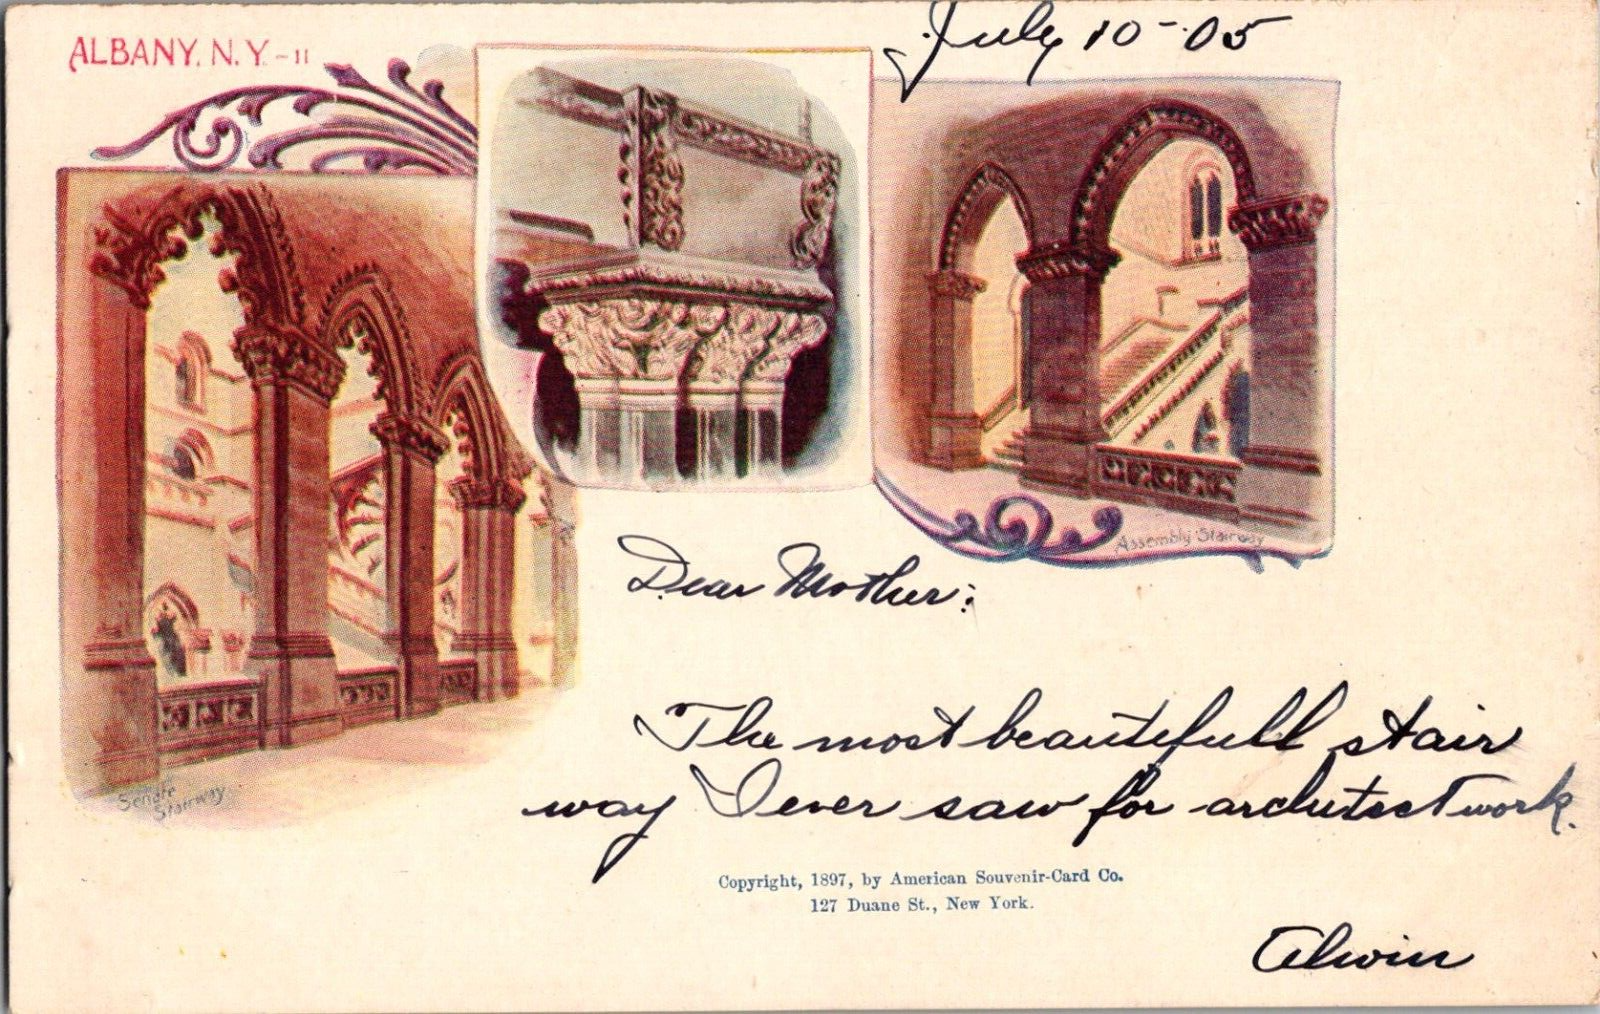 ALBANY, N.Y.-11
July 10-05
Assembly Stairway
Senate
Stairway
Dear Mother:
The most beautefull stair
way I ever saw for archutect work.
Copyright, 1897, by American Souvenir-Card Co.
127 Duane St., New York.
Alwin